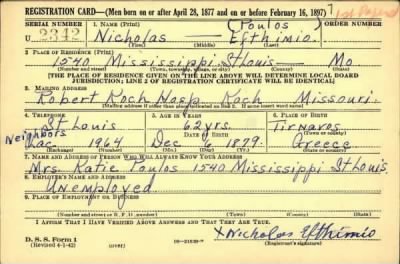 REGISTRATION CARD—(Men born on or after April 28, 1877 and on or before February 16, 1897)
SERIAL NUMBER 1. NAME (Print) (Poulos) ORDER NUMBER
U 2342 Nicholas — Efthimio
(First) (Middle) (Last)
2. PLACE OF RESIDENCE (Print)
1540 Mississippi St Louis — Mo
(Number and street) (Town, township, village, or city) (County) (State)
[THE PLACE OF RESIDENCE GIVEN ON THE LINE ABOVE WILL DETERMINE LOCAL BOARD
JURISDICTION; LINE 2 OF REGISTRATION CERTIFICATE WILL BE IDENTICAL]
3. MAILING ADDRESS
Robert Koch Hosp Koch Missouri
[Mailing address if other than place indicated on line 2. If same insert word same]
4. TELEPHONE 5. AGE IN YEARS 6. PLACE OF BIRTH
St Louis 62 yrs. Tirnavos
Neighbors DATE OF BIRTH
Lac. 1964 Dec 1879. Greece
(Exchange) (Number) (Mo.) (Day) (Yr.) (State or country)
7. NAME AND ADDRESS OF PERSON WHO WILL ALWAYS KNOW YOUR ADDRESS
Mrs. Katie Poulos 1540 Mississippi St Louis
8. EMPLOYER'S NAME AND ADDRESS
Unemployed
9. PLACE OF EMPLOYMENT OR BUSINESS
(Number and street or R. F. D. number) (Town) (County) (State)
I AFFIRM THAT I HAVE VERIFIED ABOVE ANSWERS AND THAT THEY ARE TRUE.
D. S. S. Form 1
(Revised 4-1-42) (over) x Nicholas Efthimio
(Registrant's signature)